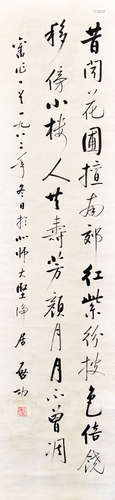 昔闻花圃擅南郊红紫纷披色倍饶
移傍小楼人共寿芳颜月月不曾凋
旧作一首一九八三年冬日于北师大坚净居 启功